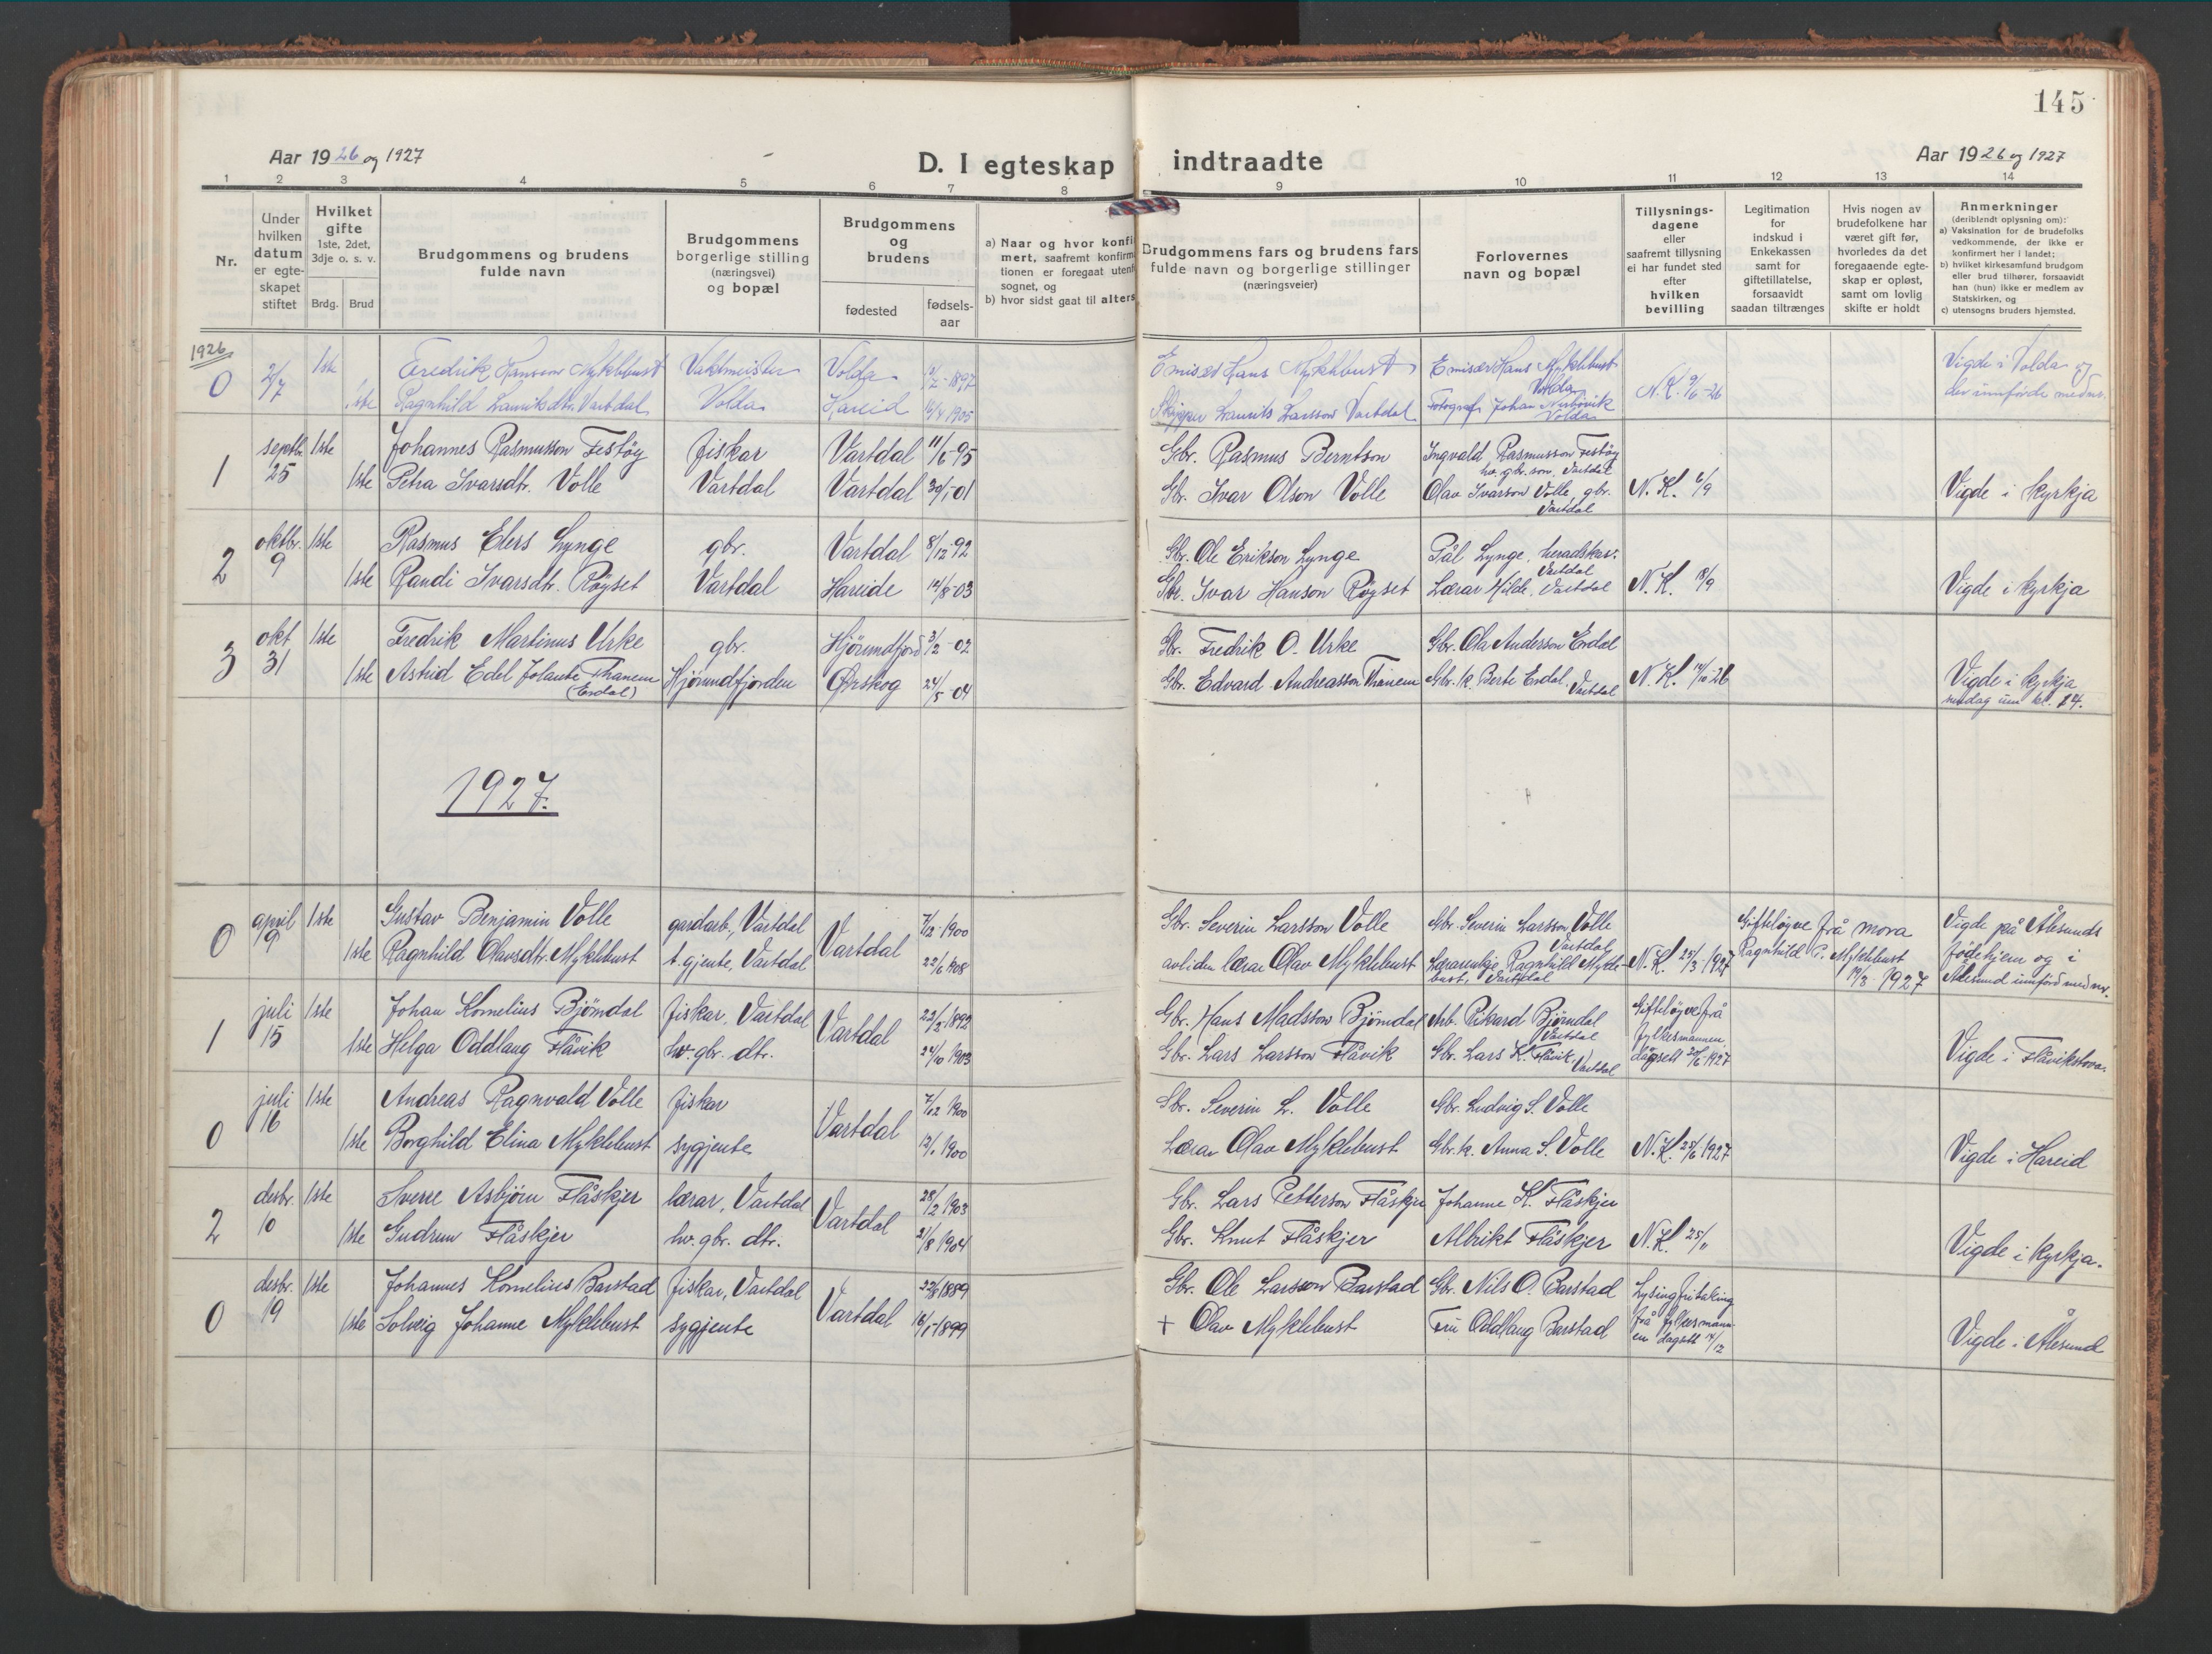 145
Aar 1926 og 1927
D. I egteskap indtraadte
Aar 1926 og 1927
1 2 3 4 5 6 7 8 9 10 11 12 13 14
Nr.
Under hvilken datum er egteskapet stiftet
Hvilket gifte 1ste, 2det, 3dje o. s. v.
Brdg. Brud
Brudgommens og brudens fulde navn
Brudgommens borgerlige stilling (næringsvei) og bopæl
Brudgommens og brudens
fødested
fødsels-aar
a) Naar og hvor konfi
mert, saafremt konfirm
tionen er foregaat utenf
sognet, og
b) hvor sidst gaat til alters
Brudgommens fars og brudens fars
fulde navn og borgerlige stillinger
(næringsveier)
Forlovernes
navn og bopæl
Tillysnings-
dagene
eller
saafremt tillysning
ei har fundet sted
efter
hvilken
bevilling
Legitimation
for
indskud i
Enkekassen
samt for
giftetillatelse,
forsaavidt
saadan tiltrænges
Hvis nogen av
brudefolkene har
været gift før,
hvorledes da det
foregaaende egte-
skap er opløst,
samt om lovlig
skifte er holdt
Anmerkninger
(deriblandt oplysning om):
a) Vaksination for de brudefolks
vedkommende, der ikke er
konfirmert her i landet;
b) hvilket kirkesamfund brudgom
eller brud tilhører, forsaavidt
han (hun) ikke er medlem av
Statskirken, og
c) utensogns bruders hjemsted.
1926
0 2/7 1ste Fredrik Hansen Myklebust Vaktmeister Volda 1897 Emisær Hans Myklebust Emisær Hans Myklebust Volda N. K. 9/6-26 Vigde i Volda og
1ste Ragnhild Lauritsdtr. Vartdal Volda Hareid 1905 Skipper Laurits Larsson Vartdal Fotograf Johan Volda der innförde med nr.
1 septbr. 25 1ste Johannes Rasmusson Festöy fiskar Vartdal 11/6-95 Gbr. Rasmus Berntson Ingvald Rasmusson Festöy hv. gbr. son, Vartdal
1ste Petra Ivarsdtr. Volle Vartdal Vartdal 30/1-01 Gbr. Ivar Olson Volle Olav Ivarson Volle, gbr. Vartdal N. K. 6/9 Vigde i kyrkja
2 oktbr. 9 1ste Rasmus Elers Lynge gbr. Vartdal 8/12-92 Gbr. Ole Erikson Lynge Pål Lynge, heradskas. Vartdal
1ste Randi Ivarsdtr. Röyset Vartdal Hareide 14/8-03 Gbr. Ivar Hanson Röyset Lærar Hilde, Vartdal N. K. 18/9 Vigde i kyrkja
3 okt 31 1ste Fredrik Martinus Urke gbr. Hjörundfjord 3/2-02 Gbr. Fredrik O. Urke Gbr. Ola Anderson Erdal
1ste Astrid Edel Jolante Thanem (Erdal) Hjörundfjorden Ørskog 24/5-04 Gbr. Edvard Andreasson Thanem Gbr. k. Berte Erdal, Vartdal N. K. 14/10-26 Vigde i kyrkja
sundag um kl. 14.
1927.
0 april 9 1ste Gustav Benjamin Volle gardarb., Vartdal Vartdal 7/12-1900 Gbr. Severin Larsson Volle Gbr. Severin Larsson Volle Vartdal Gifteløyve frå mora Vigde på Ålesunds
1ste Ragnhild Olavsdtr. Myklebust t. gjente, Vartdal 22/6 1908 avliden lærar Olav Myklebust Lærarenkje Ragnhild Myklebust, Vartdal N. K. 25/3-1927 Ragnhild P. Myklebust 19/3 1927 fødehjem og i
Ålesund innförd med nr.
1 juli 15 1ste Johan Kornelius Bjørndal fiskar, Vartdal Vartdal 22/3-1892 Gbr. Hans Madsson Bjørndal Arb. Rikard Bjørndal Vartdal Gifteløyve frå fylkesmannen,
1ste Helga Oddlaug Flåvik hv. gbr. dtr. 24/10 1903 Gbr. Lars Larsson Flåvik Gbr. Lars K. Flåvik Vartdal dagsett 20/6-1927 Vigde i Flåvikstova.
0 juli 16 1ste Andreas Ragnvald Volle fiskar Vartdal 7/12 1900 Gbr. Severin L. Volle Gbr. Ludvig S. Volle
1ste Borghild Elina Myklebust sygjente 1900 Lærar Olav Myklebust Gbr. k. Anna S. Volle N. K. 25/6 1927 Vigde i Hareid
2 desbr. 10 1ste Sverre Asbjörn Flåskjer lærar, Vartdal Vartdal 28/2 1903 Gbr. Lars Petterson Flåskjer Johanne K. Flåskjer
1ste Gudrun Flåskjer hv. gbr. dtr. 31/8 1904 Gbr. Knut Flåskjer Albrikt Flåskjer N. K. 25/11 Vigde i kyrkja.
0 desbr. 19 1ste Johannes Kornelius Barstad fiskar, Vartdal Vartdal 22/8 1889 Gbr. Ole Larsson Barstad Gbr. Nils O. Barstad Lysingfritaking
1ste Solveig Johanne Myklebust sygjente 16/1-1899 + Olav Myklebust Fru Oddlaug Barstad frå fylkesmannen dagsett 14/12 Vigde i Ålesund